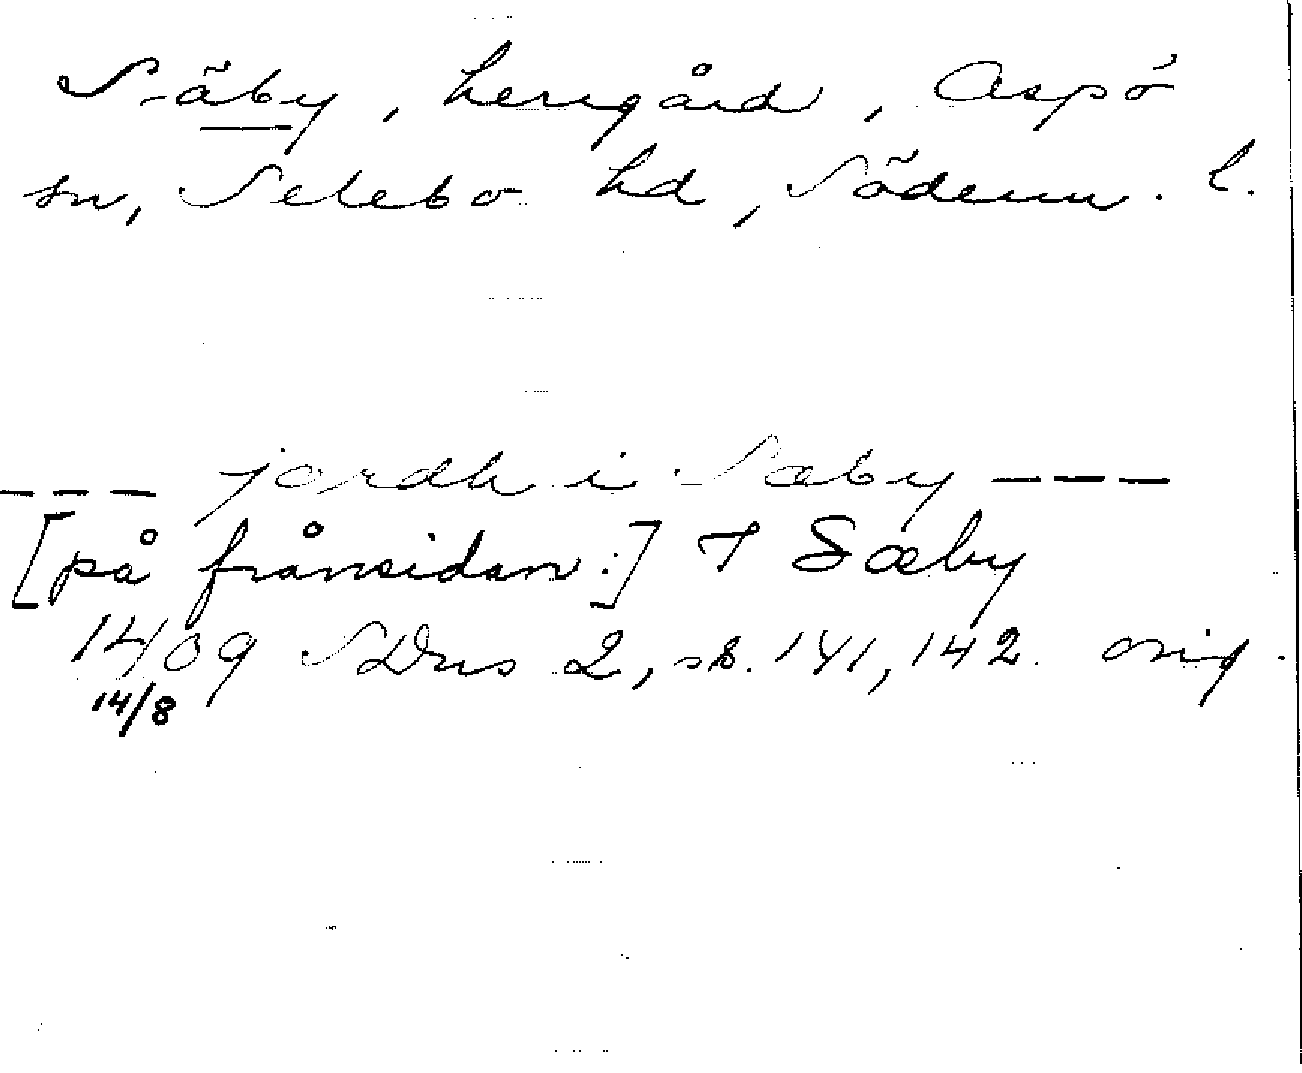 Säby, herrgård, Aspö
sn, Selebo hd, Söderm. l.
--- jordh i Sæby ---
[på frånsidan:] I Sæby
1409 SDns 2, sb. 141, 142. orig.
14/8